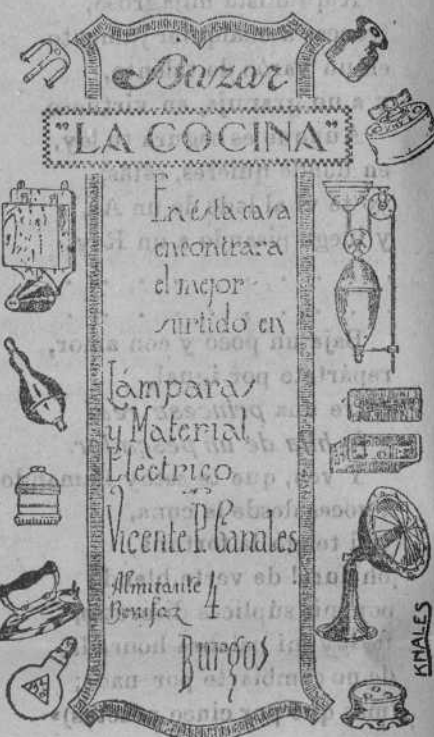 Bazar
"LA COCINA"
En ésta casa
encontrara
el mejor
surtido en
Lámparas
y Material
Electrico
Vicente P. Canales
Almirante
Bonifaz 4
Burgos
KNALES